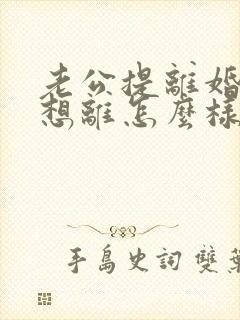 老公提離婚
想離怎麼樣
手島史詞 雙葉